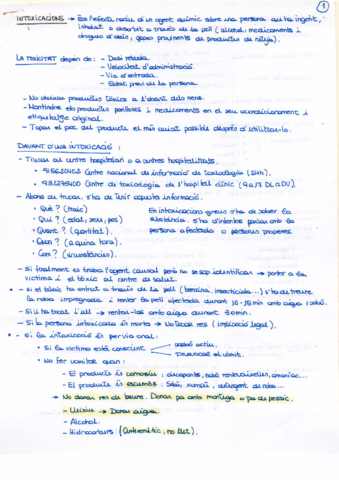 1
INTOXICACIONS → És l'efecte nociu d'un agent químic sobre una persona que ha ingerit,
inhalat o absorbit a través de la pell (alcohol, medicaments i
drogues d'abús, gasos provinents de productes de neteja).
LA TOXICITAT depèn de: - Dosi rebuda.
- Velocitat d'administració.
- Via d'entrada.
- Estat previ de la persona.
- No deixar productes tòxics a l'abast dels nens.
- Mantindre els productes perillosos i medicaments en el seu condicionament i
etiquetatge original.
- Tapar el pot del producte el més aviat possible després d'utilitzar-lo.
DAVANT D'UNA INTOXICACIÓ :
- Trucar al centre hospitalari o a centres hospitalitzats.
• 915620402 Centre nacional de informació de toxicologia (24h).
• 932275400 Centre de toxicologia de l'hospital clínic
- Abans de trucar, s'ha de tenir aquesta informació.
• Què ? (tòxic)
• Qui ? (edat, sexe, pes)
• Quant ? (quantitat).
• Quan ? (a quina hora).
• Com ? (circumstàncies).
En intoxicacions greus s'ha de saber la
substància. S'ha d'intentar parlar amb la
persona afectada o persones properes.
- Si finalment es troba l'agent causal però no se sap identificar → portar a la
víctima i el tòxic al centre de salut.
• - Si el tòxic ha entrat a través de la pell (benzina, insecticida...) s'ha de treure
la roba impregnada i rentar la pell afectada durant 10-15 min amb aigua i sabó.
- Si li ha tocat l'ull → rentar-los amb aigua durant 30 min.
- Si la persona intoxicada és morta → No tocar res (implicació legal).
• - Si la intoxicació és per via oral:
• Si la víctima està conscient → carbó actiu.
→ provocar el vòmit.
• No fer vomitar quan:
- El producte és corrosiu : salfumant, amoníac...
- El producte és escumós : Sabó, xampú, detergent de roba...
→ No donar res de beure. Donar pa amb mantega o pa de pessic.
- Lleixiu → Donar aigua
- Alcohol.
- Hidrocarburs : (Antiemètic, no llet).